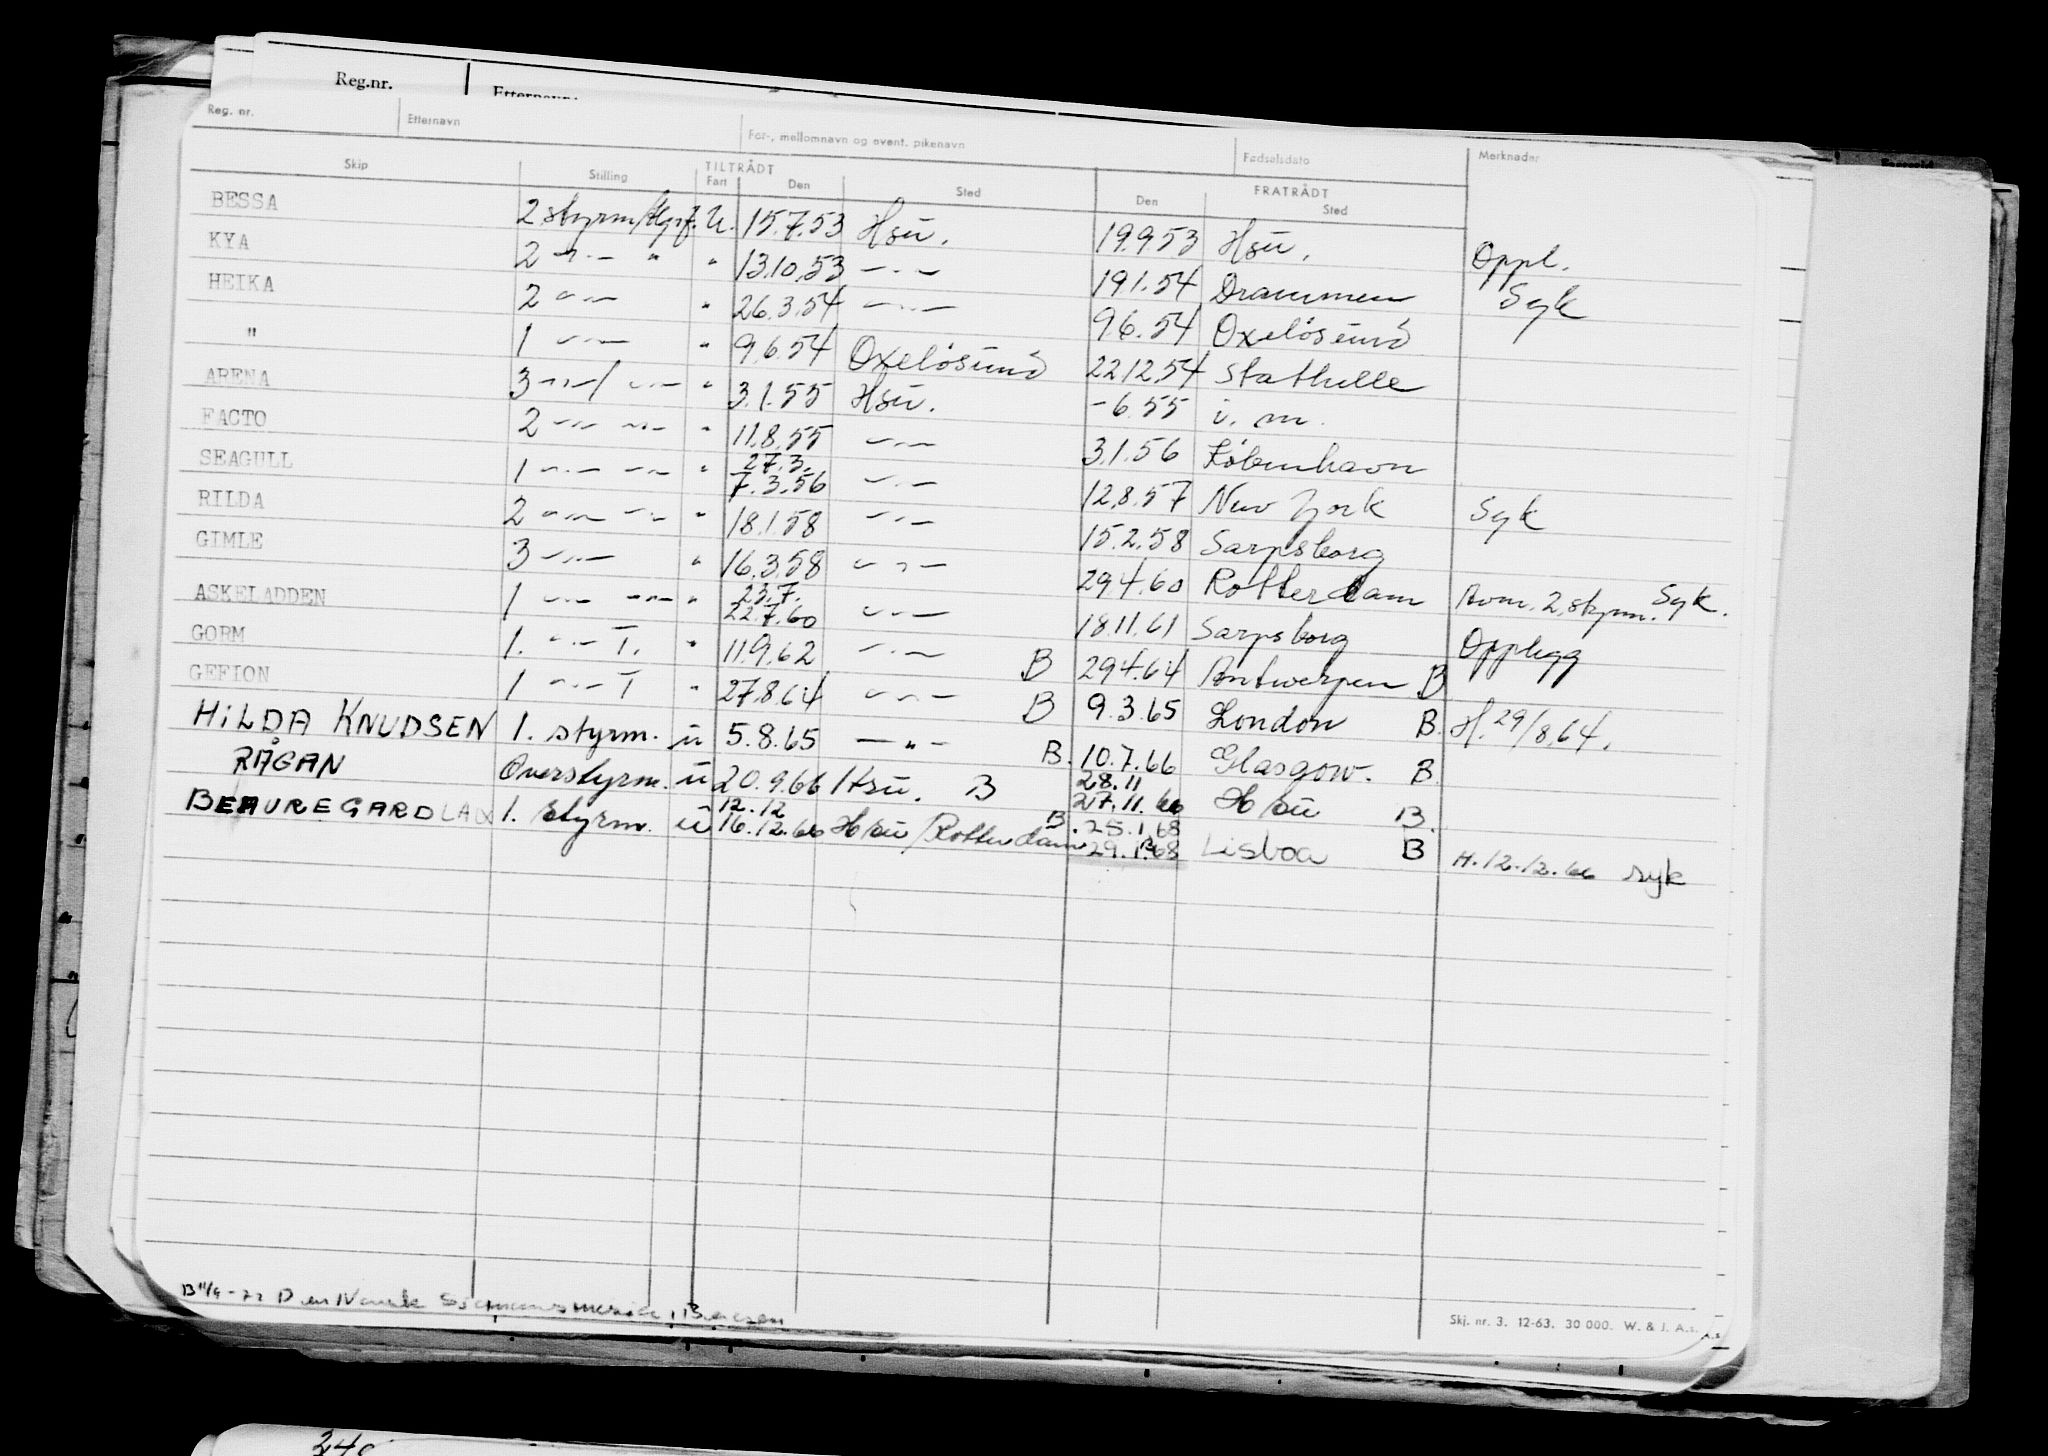 Reg.nr. Etternavn
Reg. nr. Etternavn For-, mellomnavn og event. pikenavn Fødselsdato Merknader
Skip Stilling TILTRÅDT Fart Den Sted FRATRÅDT Den Sted
BESSA 2 styrm/ U. 15.7.53 Hsu. 19.9.53 Hsu. Oppl.
KYA 2 -"- " " 13.10.53 -"- 19.1.54 Drammen Syk
HEIKA 2 -"- " 26.3.54 -"- 9.6.54 Oxeløsund
" 1 -"- " 9.6.54 Oxeløsund 22.12.54 Stathelle
ARENA 3 -"-/ -"- " 3.1.55 Hsu. -6.55 i. m.
FACTO 2 -"- -"- " 11.8.55 -"- 3.1.56 København
SEAGULL 1 -"- -"- " 27.3. 7.3.56 -"- 12.8.57 New York Syk
RILDA 2 -"- -"- " 18.1.58 -"- 15.2.58 Sarpsborg
GIMLE 3 -"- " 16.3.58 -"- 29.4.60 Rotterdam Avm. 2. styrm. Syk.
ASKELADDEN 1 -"- -"- " 23.7. 22.7.60 -"- 18.11.61 Sarpsborg Opplegg
GORM 1. -"- T. " 11.9.62 -"- B 29.4.64 Antwerpen B
GEFION 1 -"- T " 27.8.64 -"- B 9.3.65 London B. H. 29/8.64.
HILDA KNUDSEN 1. styrm. u 5.8.65 -"- B. 10.7.66 Glasgow. B.
RÅGAN Overstyrm. u 20.9.66 Hsu. B 28.11 27.11.66 Hsu B.
BEAUREGARD 1. styrm. u 12.12 16.12.66 Hsu/Rotterdam B. 25.1.68 29.1.68 Lisboa B H. 12.12.66 syk
B 11/9-72 Den Norske Sjømannsmisjon, Bergen
Skj. nr. 3. 12-63. 30 000. W. & J. A.s.